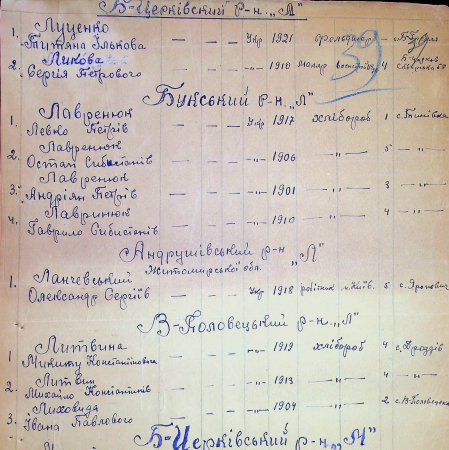 Б-Церківський р-н. „Л"
1. Луценко
Титяна Ількова — — — Укр 1921 фельдшер — с.
2. Ликова
Сергія Петрового — — — -„- 1910 Маляр 4 Б-Церков
39
Букський р-н „Л"
1. Лавренюк
Левко Петрів — — — Укр 1917 хлібороб 1 с.
2. Лавренюк
Остап Сивистанів — — — -„- 1906 —„— 5 —„—
3. Лавренюк
Андріян Петрів — — — -„- 1901 —„— 3 —„—
4. Лавринюк
Гаврило Сивистанів — — — -„- 1910 —„— 4 —„—
Андрушівський р-н „Л"
Житомирської обл.
1. Ланчевський
Олександр Сергіїв — — — Укр 1918 робітник м.Київ. 5 с. Яропович
В-Половецький р-н „Л"
1. Литвина
Микиту Константиновича — — — -„- 1912 хлібороб 4 с. Дроздів
2. Литвин
Михайло Константинів — — — -„- 1913 —„— 4 —„—
3. Лиховида
Івана Павлового — — — -„- 1904 —„— 2 с. В-Половецьке
Б-Церківський р-н „М"